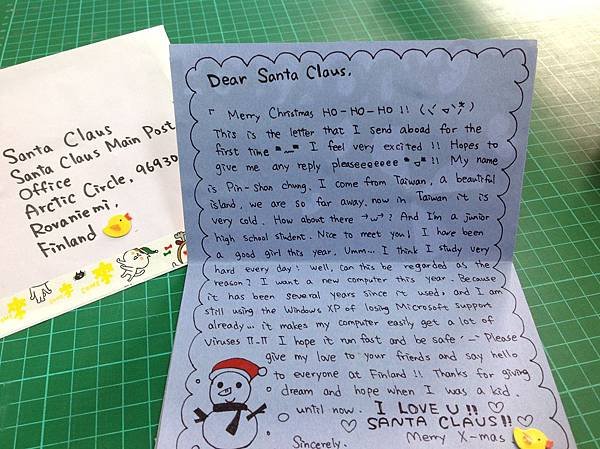 Santa Claus
Santa Claus Main Post
Office
Arctic Circle, 96930
Rovaniemi,
Finland
Dear Santa Claus,
「 Merry Christmas HO-HO-HO !!
This is the letter that I send aboad for the
first time I feel very excited !! Hopes to
give me any reply pleaseeeeeee My name
is Pin-shan chung. I come from Taiwan, a beautiful
island. we are so far away. now in Taiwan it is
very cold. How about there →w→? And I'm a junior
high school student. Nice to meet you! I have been
a good girl this year. Umm... I think I study very
hard every day! well, can this be regarded as the
reason? I want a new computer this year. Because
it has been several years since it used, and I am
still using the Windows XP of losing Microsoft support
already... it makes my computer easily get a lot of
viruses π-π I hope it run fast and be safe! Please
give my love to your friends and say hello
to everyone at Finland !! Thanks for giving
dream and hope when I was a kid.
until now. I LOVE U !!
♡ SANTA CLAUS!! ♡
Sincerely. Merry X-mas